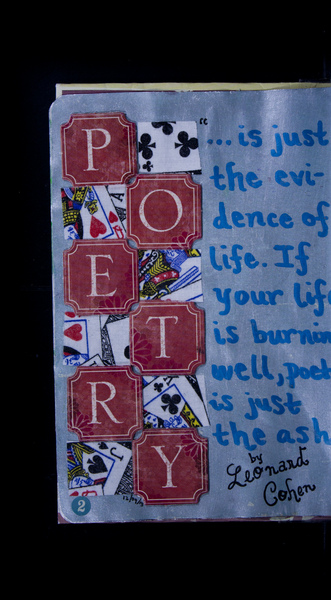 P
O
E
T
R
Y
"... is just
the evi-
dence of
life. If
your lif
is burnin
well, poet
is just
the ash
by
Leonard
Cohen
A
J
2